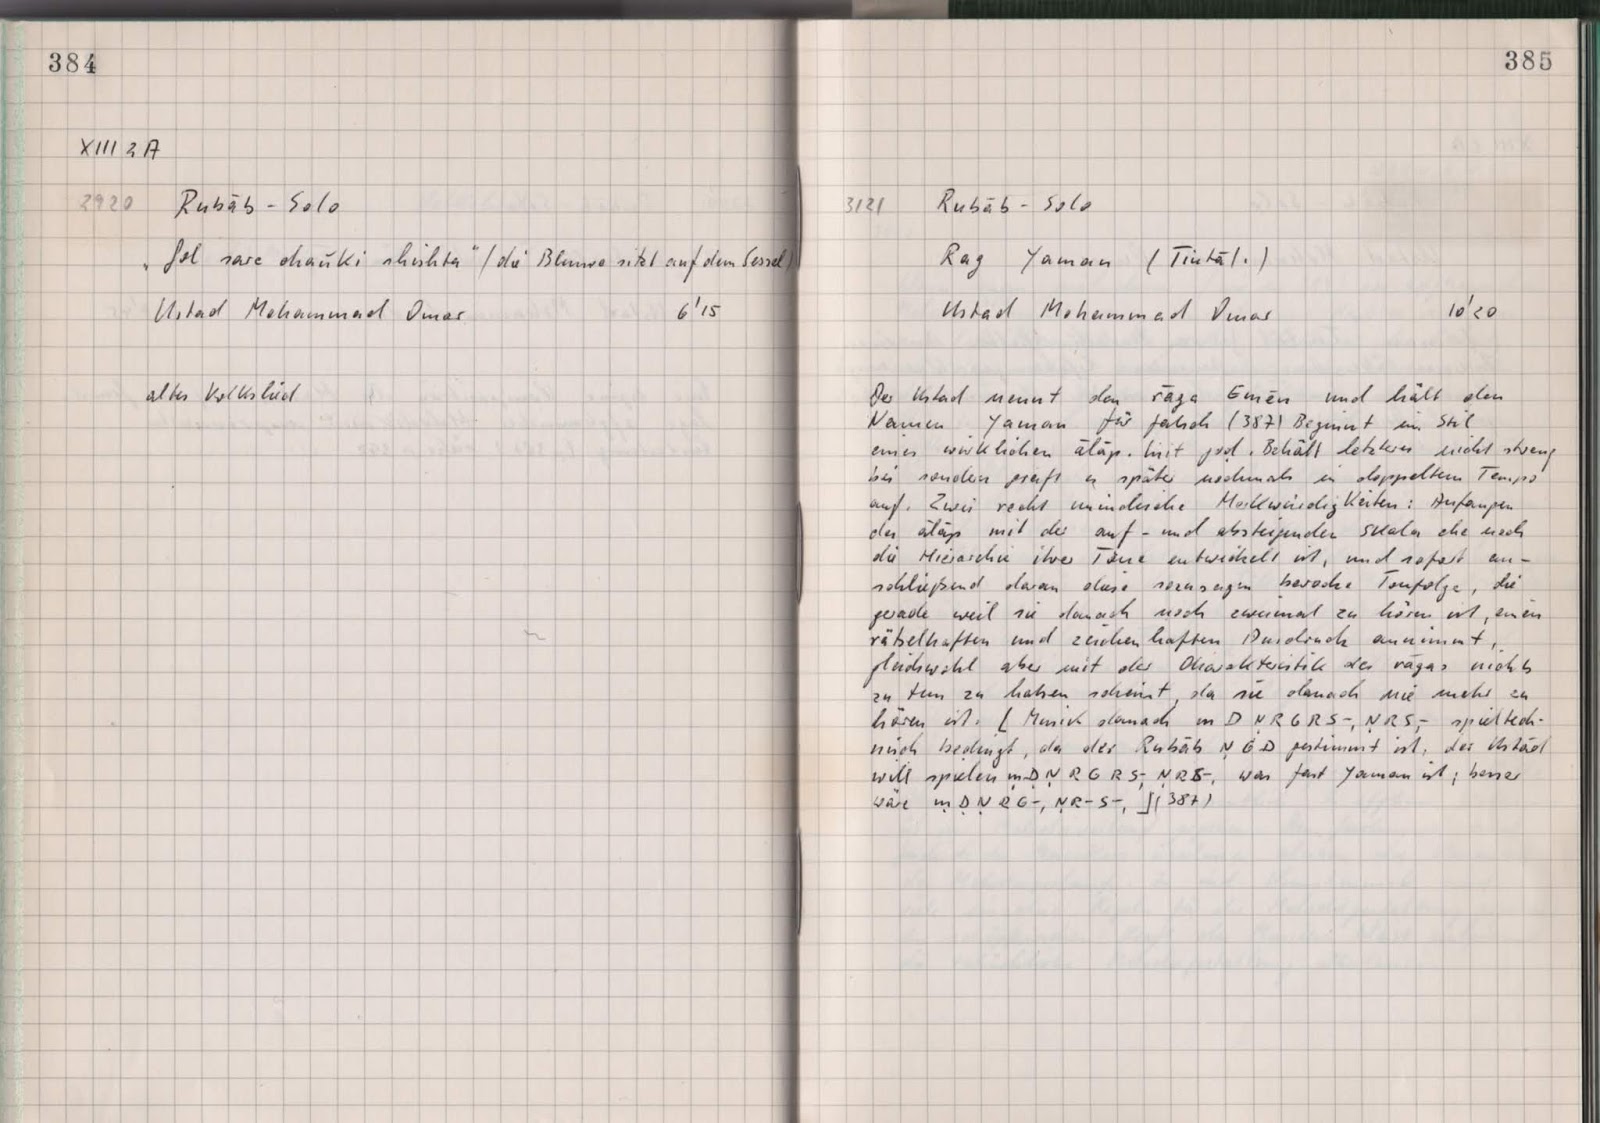 384
XIII 2 A
2920 Rubāb - Solo
„Gol sare chauki shishta" (die Blume sitzt auf dem Sessel)
Ustad Mohammad Omar 6'15
altes Volkslied
385
3121 Rubāb - Solo
Rag Yaman (Tintāl.)
Ustad Mohammad Omar 10'20
Der Ustad nennt den rāga Emēn und hält den
Namen Yaman für falsch (387) Beginnt im Stil
eines wirklichen ālāp. mit jod. Behält letzteres nicht streng
bei sondern greift es später nochmals in doppeltem Tempo
auf. Zwei recht unindische Merkwürdigkeiten: Anfangen
des ālāp mit der auf- und absteigenden Skala ehe noch
die Hierarchie ihrer Töne entwickelt ist, und sofort an-
schließend daran diese sozusagen barocke Tonfolge, die
gerade weil sie danach noch zweimal zu hören ist, einen
rätselhaften und zeichenhaften Ausdruck annimmt,
gleichwohl aber mit der Charakteristik des rāgas nichts
zu tun zu haben scheint, da sie danach nie mehr zu
hören ist. [ Musik danach m D Ṇ R G R S -, Ṇ R S, - spieltech-
nisch bedingt, da der Rubāb Ṇ G D gestimmt ist, der Ustād
will spielen ṃ Ḍ Ṇ R G R S -, Ṇ R S -, was fast Yaman ist; besser
wäre ṃ Ḍ Ṇ R G -, Ṇ R - S -, ] (387)